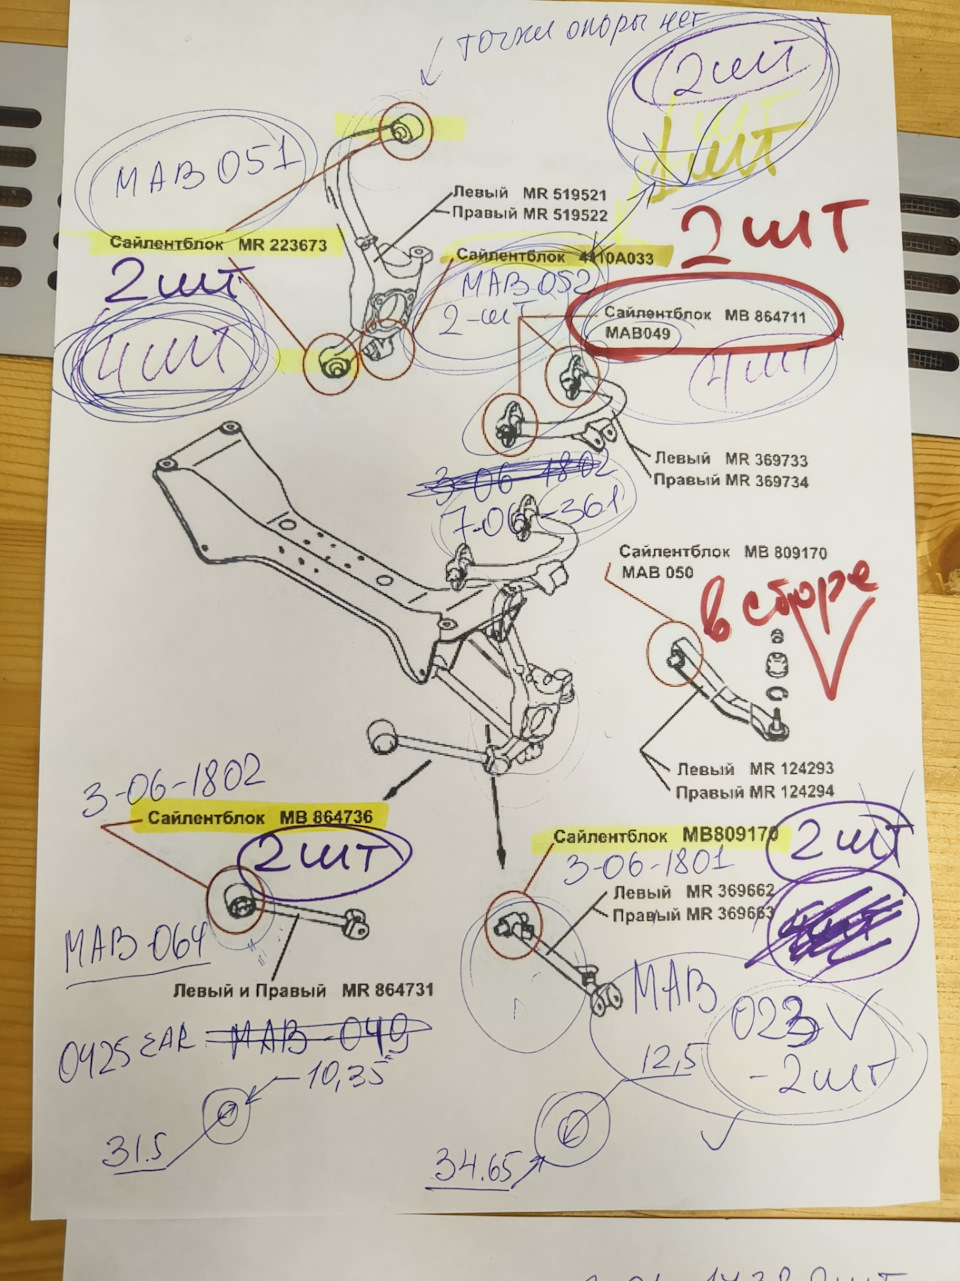 точки опоры нет
2 шт
1 шт
1 шт
MAB 051
Левый MR 519521
Правый MR 519522
2 шт
Сайлентблок MR 223673
Сайлентблок 4110A033
2 шт
MAB 052
2-шт
4 шт
Сайлентблок MB 864711
MAB049
4 шт
Левый MR 369733
Правый MR 369734
3-06-1802
7-06-361
Сайлентблок MB 809170
MAB 050
в сборе
Левый MR 124293
Правый MR 124294
3-06-1802
Сайлентблок MB 864736
2 шт
Сайлентблок MB809170
2 шт
3-06-1801
Левый MR 369662
Правый MR 369663
4 шт
MAB 064
Левый и Правый MR 864731
MAB
023
-2 шт
0425 ZAR MAB-049
10,35
31.5
12,5
34.65